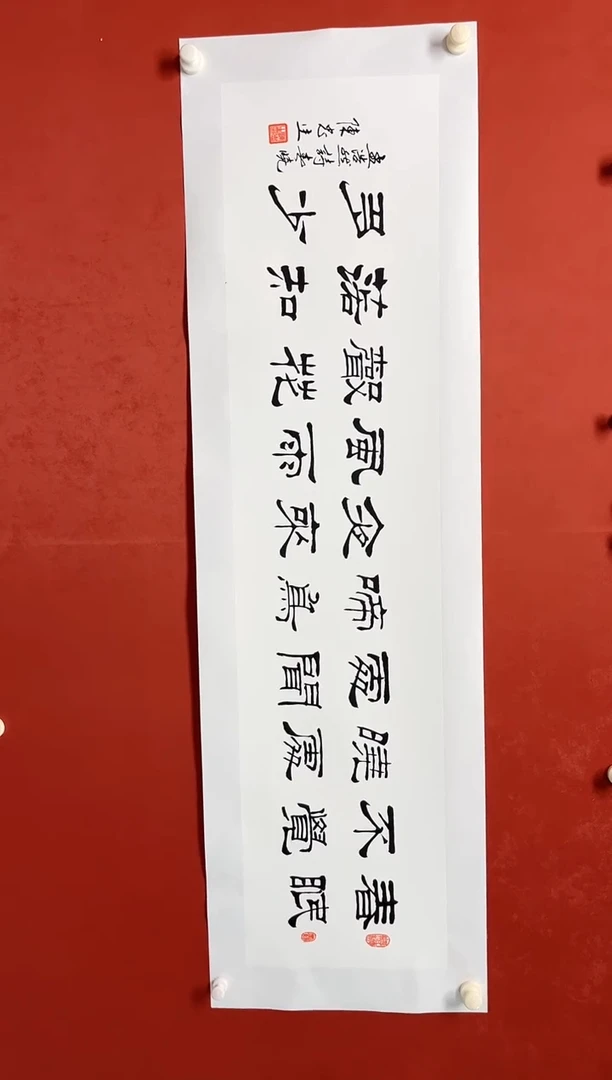 春眠
不覺
曉處
處聞
啼鳥
夜來
風雨
聲花
落知
多少
孟浩然詩春曉
陳